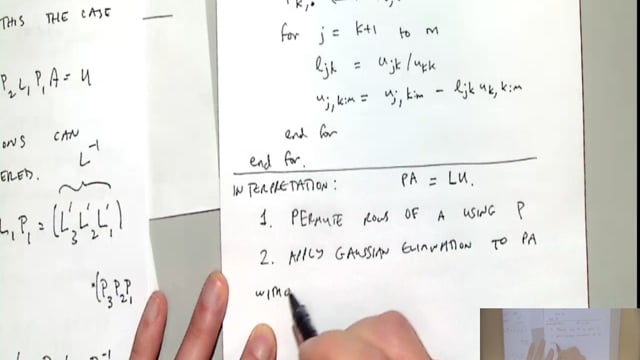 THIS THE CASE
P₂L₁P₁A = U
ONS CAN
ERED.
L⁻¹
L₁P₁ = (L₃'L₂'L₁')
·(P₃P₂P₁
for j = k+1 to m
l_jk = u_jk/u_kk
u_j,k:m = u_j,k:m − l_jk u_k,k:m
end for
end for.
INTERPRETATION: PA = LU.
1. PERMUTE ROWS OF A USING P
2. APPLY GAUSSIAN ELIMINATION TO PA